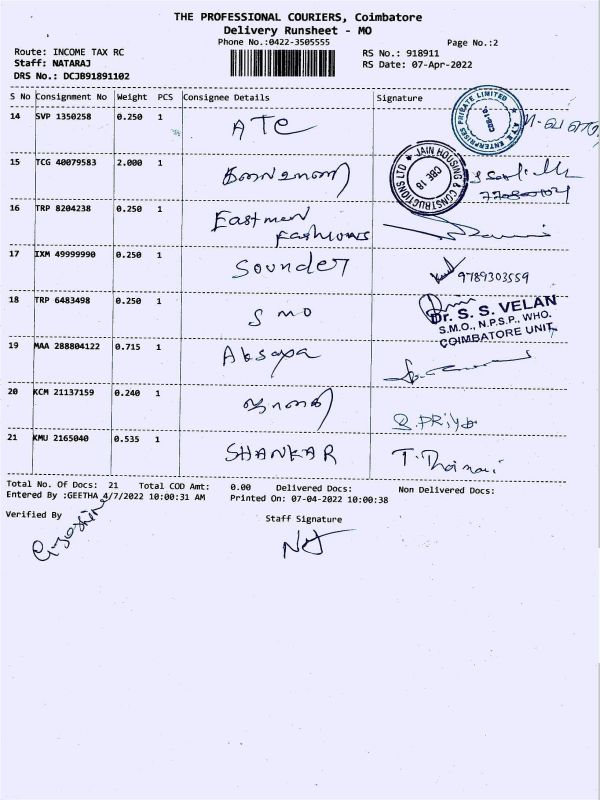 THE PROFESSIONAL COURIERS, Coimbatore
Delivery Runsheet - MO
Phone No.:0422-3505555
Page No.:2
Route: INCOME TAX RC
RS No.: 918911
Staff: NATARAJ
RS Date: 07-Apr-2022
DRS No.: DCJB91891102
S No Consignment No Weight PCS Consignee Details Signature
14 SVP 1350258 0.250 1 ATE
A.T.E. ENTERPRISES PRIVATE LIMITED
15 TCG 40079583 2.000 1
JAIN HOUSING & CONSTRUCTIONS LTD
CBE 18
16 TRP 8204238 0.250 1 Eastman
Fashions
17 IXM 49999990 0.250 1 Sounder
9789303559
18 TRP 6483498 0.250 1 SMO
Dr. S. S. VELAN
S.M.O., N.P.S.P., WHO.
COIMBATORE UNIT.
19 MAA 288804122 0.715 1
20 KCM 21137159 0.240 1
S. Priya
21 KMU 2165040 0.535 1 SHANKAR
Total No. Of Docs: 21 Total COD Amt: 0.00 Delivered Docs: Non Delivered Docs:
Entered By :GEETHA 4/7/2022 10:00:31 AM Printed On: 07-04-2022 10:00:38
Verified By
Staff Signature